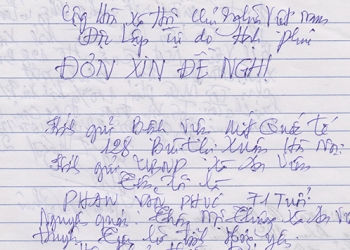 Cộng Hòa Xã Hội Chủ Nghĩa Việt Nam
Độc Lập Tự do Hạnh phúc
ĐƠN XIN ĐỀ NGHỊ
Kính gửi Bệnh Viện Mắt Quốc tế
128 Bùi Thị Xuân Hà Nội
Kính gửi UBND Xã
Tên tôi là
PHAN VĂN PHÚC 71 Tuổi
Nguyên quán: Thôn Xã
Huyện Tỉnh Hưng yên